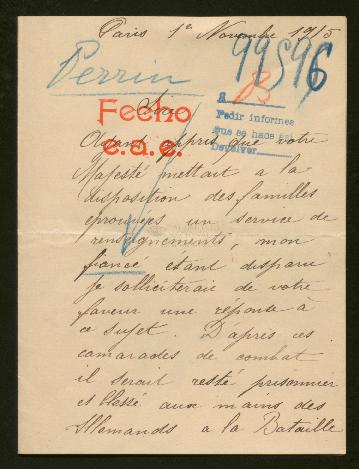 Paris 1er Novembre 1915
99596
Perrin
A 83
Pedir informes
que se hace
Devolver
Fecho
e.a.e.
Sire
Ayant appris que votre
Majesté mettait a la
disposition des familles
éprouvées un service de
renseignements, mon
fiancé étant disparu
je solliciterais de votre
faveur une réponse à
ce sujet. D'après ces
camarades de combat
il serait resté prisonnier
et blessé aux mains des
Allemands a la Bataille